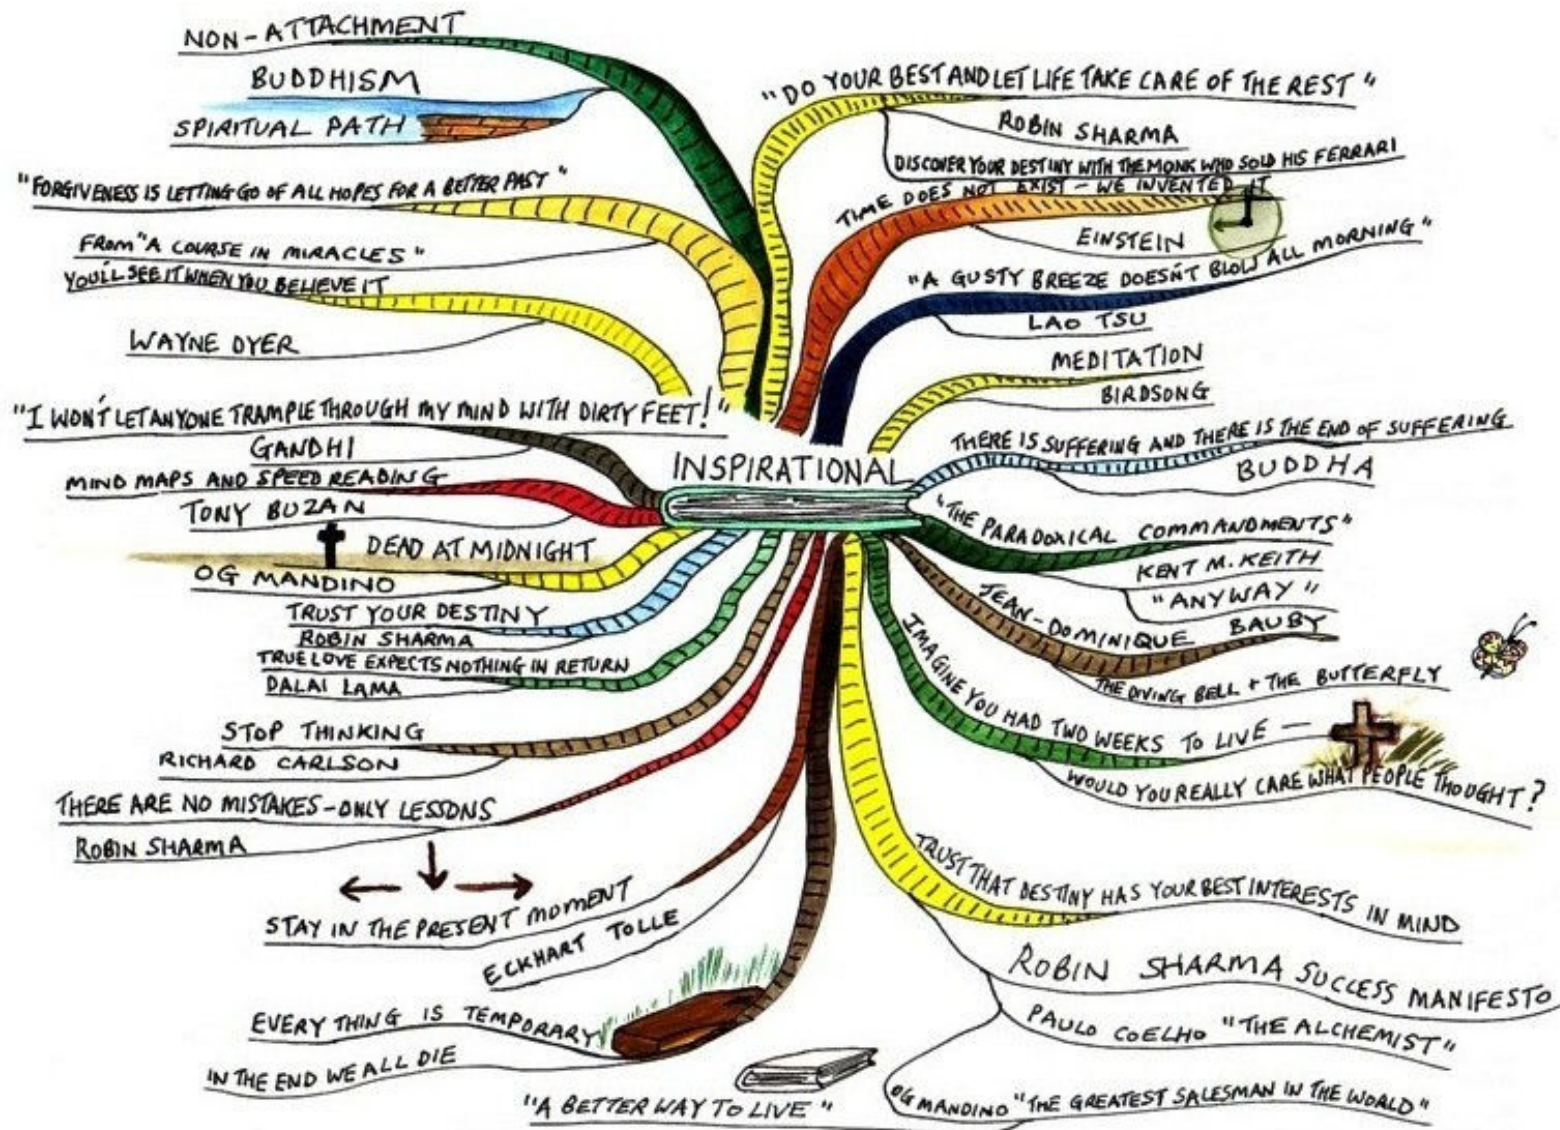 NON-ATTACHMENT
BUDDHISM
SPIRITUAL PATH
"FORGIVENESS IS LETTING GO OF ALL HOPES FOR A BETTER PAST"
FROM "A COURSE IN MIRACLES"
YOU'LL SEE IT WHEN YOU BELIEVE IT
WAYNE DYER
"I WON'T LET ANYONE TRAMPLE THROUGH MY MIND WITH DIRTY FEET!"
GANDHI
MIND MAPS AND SPEED READING
TONY BUZAN
DEAD AT MIDNIGHT
OG MANDINO
TRUST YOUR DESTINY
ROBIN SHARMA
TRUE LOVE EXPECTS NOTHING IN RETURN
DALAI LAMA
STOP THINKING
RICHARD CARLSON
THERE ARE NO MISTAKES - ONLY LESSONS
ROBIN SHARMA
STAY IN THE PRESENT MOMENT
ECKHART TOLLE
EVERY THING IS TEMPORARY
IN THE END WE ALL DIE
INSPIRATIONAL
"DO YOUR BEST AND LET LIFE TAKE CARE OF THE REST"
ROBIN SHARMA
DISCOVER YOUR DESTINY WITH THE MONK WHO SOLD HIS FERRARI
TIME DOES NOT EXIST - WE INVENTED IT
EINSTEIN
"A GUSTY BREEZE DOESN'T BLOW ALL MORNING"
LAO TSU
MEDITATION
BIRDSONG
THERE IS SUFFERING AND THERE IS THE END OF SUFFERING
BUDDHA
"THE PARADOXICAL COMMANDMENTS"
KENT M. KEITH
"ANYWAY"
JEAN-DOMINIQUE BAUBY
THE DIVING BELL + THE BUTTERFLY
IMAGINE YOU HAD TWO WEEKS TO LIVE -
WOULD YOU REALLY CARE WHAT PEOPLE THOUGHT?
TRUST THAT DESTINY HAS YOUR BEST INTERESTS IN MIND
ROBIN SHARMA SUCCESS MANIFESTO
PAULO COELHO "THE ALCHEMIST"
OG MANDINO "THE GREATEST SALESMAN IN THE WORLD"
"A BETTER WAY TO LIVE"